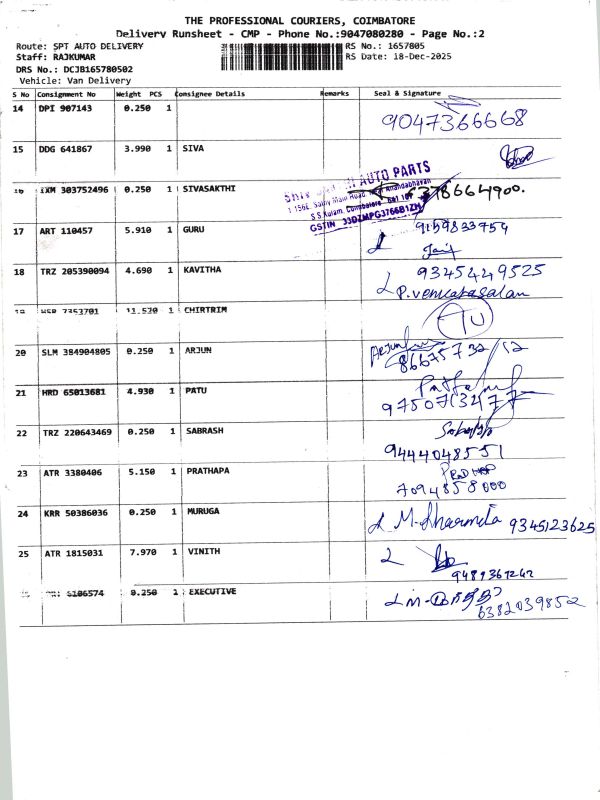 THE PROFESSIONAL COURIERS, COIMBATORE
Delivery Runsheet - CMP - Phone No.:9047080280 - Page No.:2
Route: SPT AUTO DELIVERY RS No.: 1657805
Staff: RAJKUMAR RS Date: 18-Dec-2025
DRS No.: DCJB165780502
Vehicle: Van Delivery
S No Consignment No Weight PCS Consignee Details Remarks Seal & Signature
14 DPI 907143 0.250 1 9047366668
15 DDG 641867 3.990 1 SIVA
16 IXM 303752496 0.250 1 SIVASAKTHI
AUTO PARTS
S.S.Kulam, Coimbatore - 641 107
GSTIN 33DZMPG3766B1ZH
17 ART 110457 5.910 1 GURU 9159833754
18 TRZ 205390094 4.690 1 KAVITHA 9345449525
P.venkatasalan
7353701 11.520 1 CHIRTRIM
20 SLM 384904805 0.250 1 ARJUN ARJUN
21 HRD 65013681 4.930 1 PATU
9750713477
22 TRZ 220643469 0.250 1 SABRASH
9444048551
23 ATR 3380406 5.150 1 PRATHAPA
7094858000
24 KRR 50386036 0.250 1 MURUGA 9345123625
25 ATR 1815031 7.970 1 VINITH
9489367242
6106574 0.250 1 EXECUTIVE
6382039852